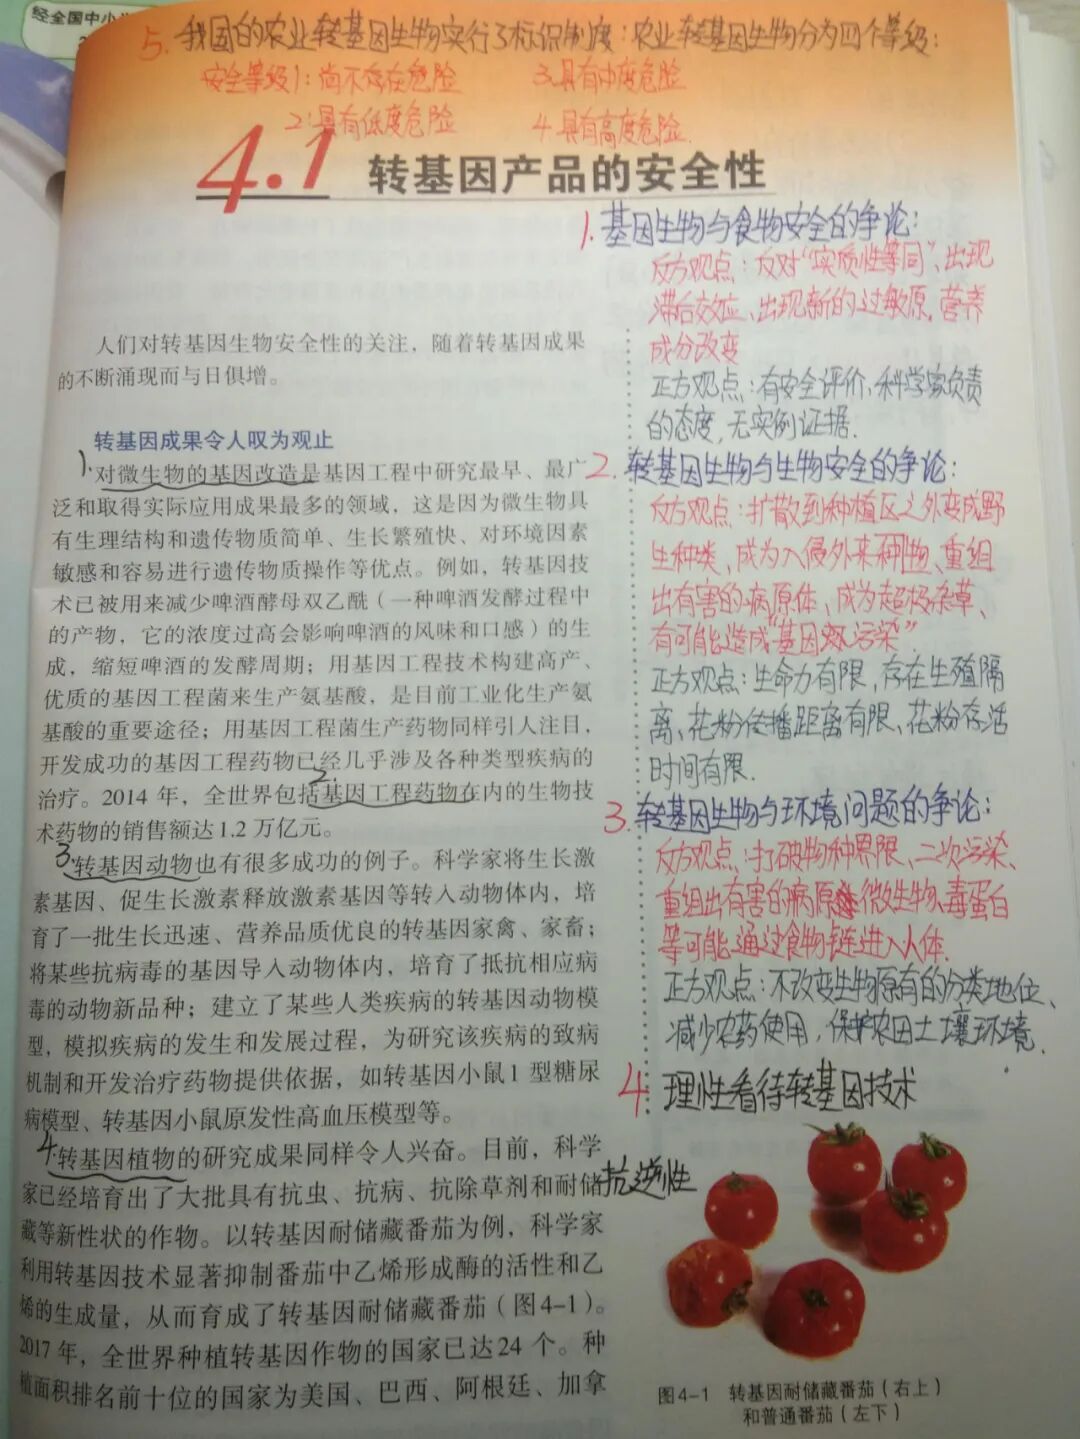 经全国中小
5.我国的农业转基因生物实行了标识制度:农业转基因生物分为四个等级:
安全等级1:尚不存在危险
3.具有中度危险
2:具有低度危险
4.具有高度危险.
4.1 转基因产品的安全性
1.基因生物与食物安全的争论:
反方观点:反对“实质性等同”、出现
滞后效应、出现新的过敏原,营养
成分改变
正方观点:有安全评价、科学家负责
的态度,无实例证据.
2.转基因生物与生物安全的争论:
反方观点:扩散到种植区之外变成野
生种类,成为入侵外来种物、重组
出有害的病原体,成为超极杂草、
有可能造成“基因污染”
正方观点:生命力有限,存在生殖隔
离、花粉传播距离有限、花粉存活
时间有限.
3.转基因生物与环境问题的争论:
反方观点:打破物种界限、二次污染、
重组出有害的病原微生物、毒蛋白
等可能通过食物链进入人体.
正方观点:不改变生物原有的分类地位、
减少农药使用,保护农田土壤环境.
4.理性看待转基因技术
人们对转基因生物安全性的关注,随着转基因成果
的不断涌现而与日俱增。
转基因成果令人叹为观止
1.对微生物的基因改造是基因工程中研究最早、最广
泛和取得实际应用成果最多的领域,这是因为微生物具
有生理结构和遗传物质简单、生长繁殖快、对环境因素
敏感和容易进行遗传物质操作等优点。例如,转基因技
术已被用来减少啤酒酵母双乙酰(一种啤酒发酵过程中
的产物,它的浓度过高会影响啤酒的风味和口感)的生
成,缩短啤酒的发酵周期;用基因工程技术构建高产、
优质的基因工程菌来生产氨基酸,是目前工业化生产氨
基酸的重要途径;用基因工程菌生产药物同样引人注目,
开发成功的基因工程药物已经几乎涉及各种类型疾病的
2.
治疗。2014 年,全世界包括基因工程药物在内的生物技
术药物的销售额达1.2 万亿元。
3.转基因动物也有很多成功的例子。科学家将生长激
素基因、促生长激素释放激素基因等转入动物体内,培
育了一批生长迅速、营养品质优良的转基因家禽、家畜;
将某些抗病毒的基因导入动物体内,培育了抵抗相应病
毒的动物新品种;建立了某些人类疾病的转基因动物模
型,模拟疾病的发生和发展过程,为研究该疾病的致病
机制和开发治疗药物提供依据,如转基因小鼠1 型糖尿
病模型、转基因小鼠原发性高血压模型等。
4.转基因植物的研究成果同样令人兴奋。目前,科学
家已经培育出了大批具有抗虫、抗病、抗除草剂和耐储
抗逆性
藏等新性状的作物。以转基因耐储藏番茄为例,科学家
利用转基因技术显著抑制番茄中乙烯形成酶的活性和乙
烯的生成量,从而育成了转基因耐储藏番茄(图4-1)。
2017 年,全世界种植转基因作物的国家已达24 个。种
植面积排名前十位的国家为美国、巴西、阿根廷、加拿
图4-1 转基因耐储藏番茄(右上)
和普通番茄(左下)